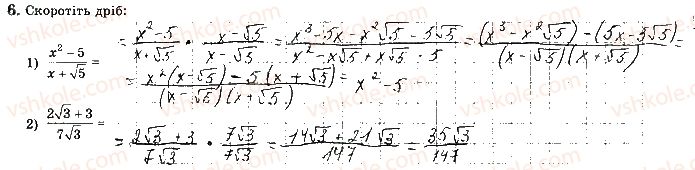 6. Скоротіть дріб:
1) (x² − 5)/(x + √5) = = (x² − 5)/(x + √5) · (x − √5)/(x − √5) = (x³ − 5x − x²√5 − 5√5)/(x² − x√5 + x√5 · 5) = ((x³ − x²√5) − (5x − 5√5))/((x − √5)(x + √5)) =
= (x²(x − √5) − 5(x + √5))/((x − √5)(x + √5)) = x² − 5
2) (2√3 + 3)/(7√3) = = (2√3 + 3)/(7√3) · (7√3)/(7√3) = (14√3 + 21√3)/147 = (35√3)/147
vshkole.com